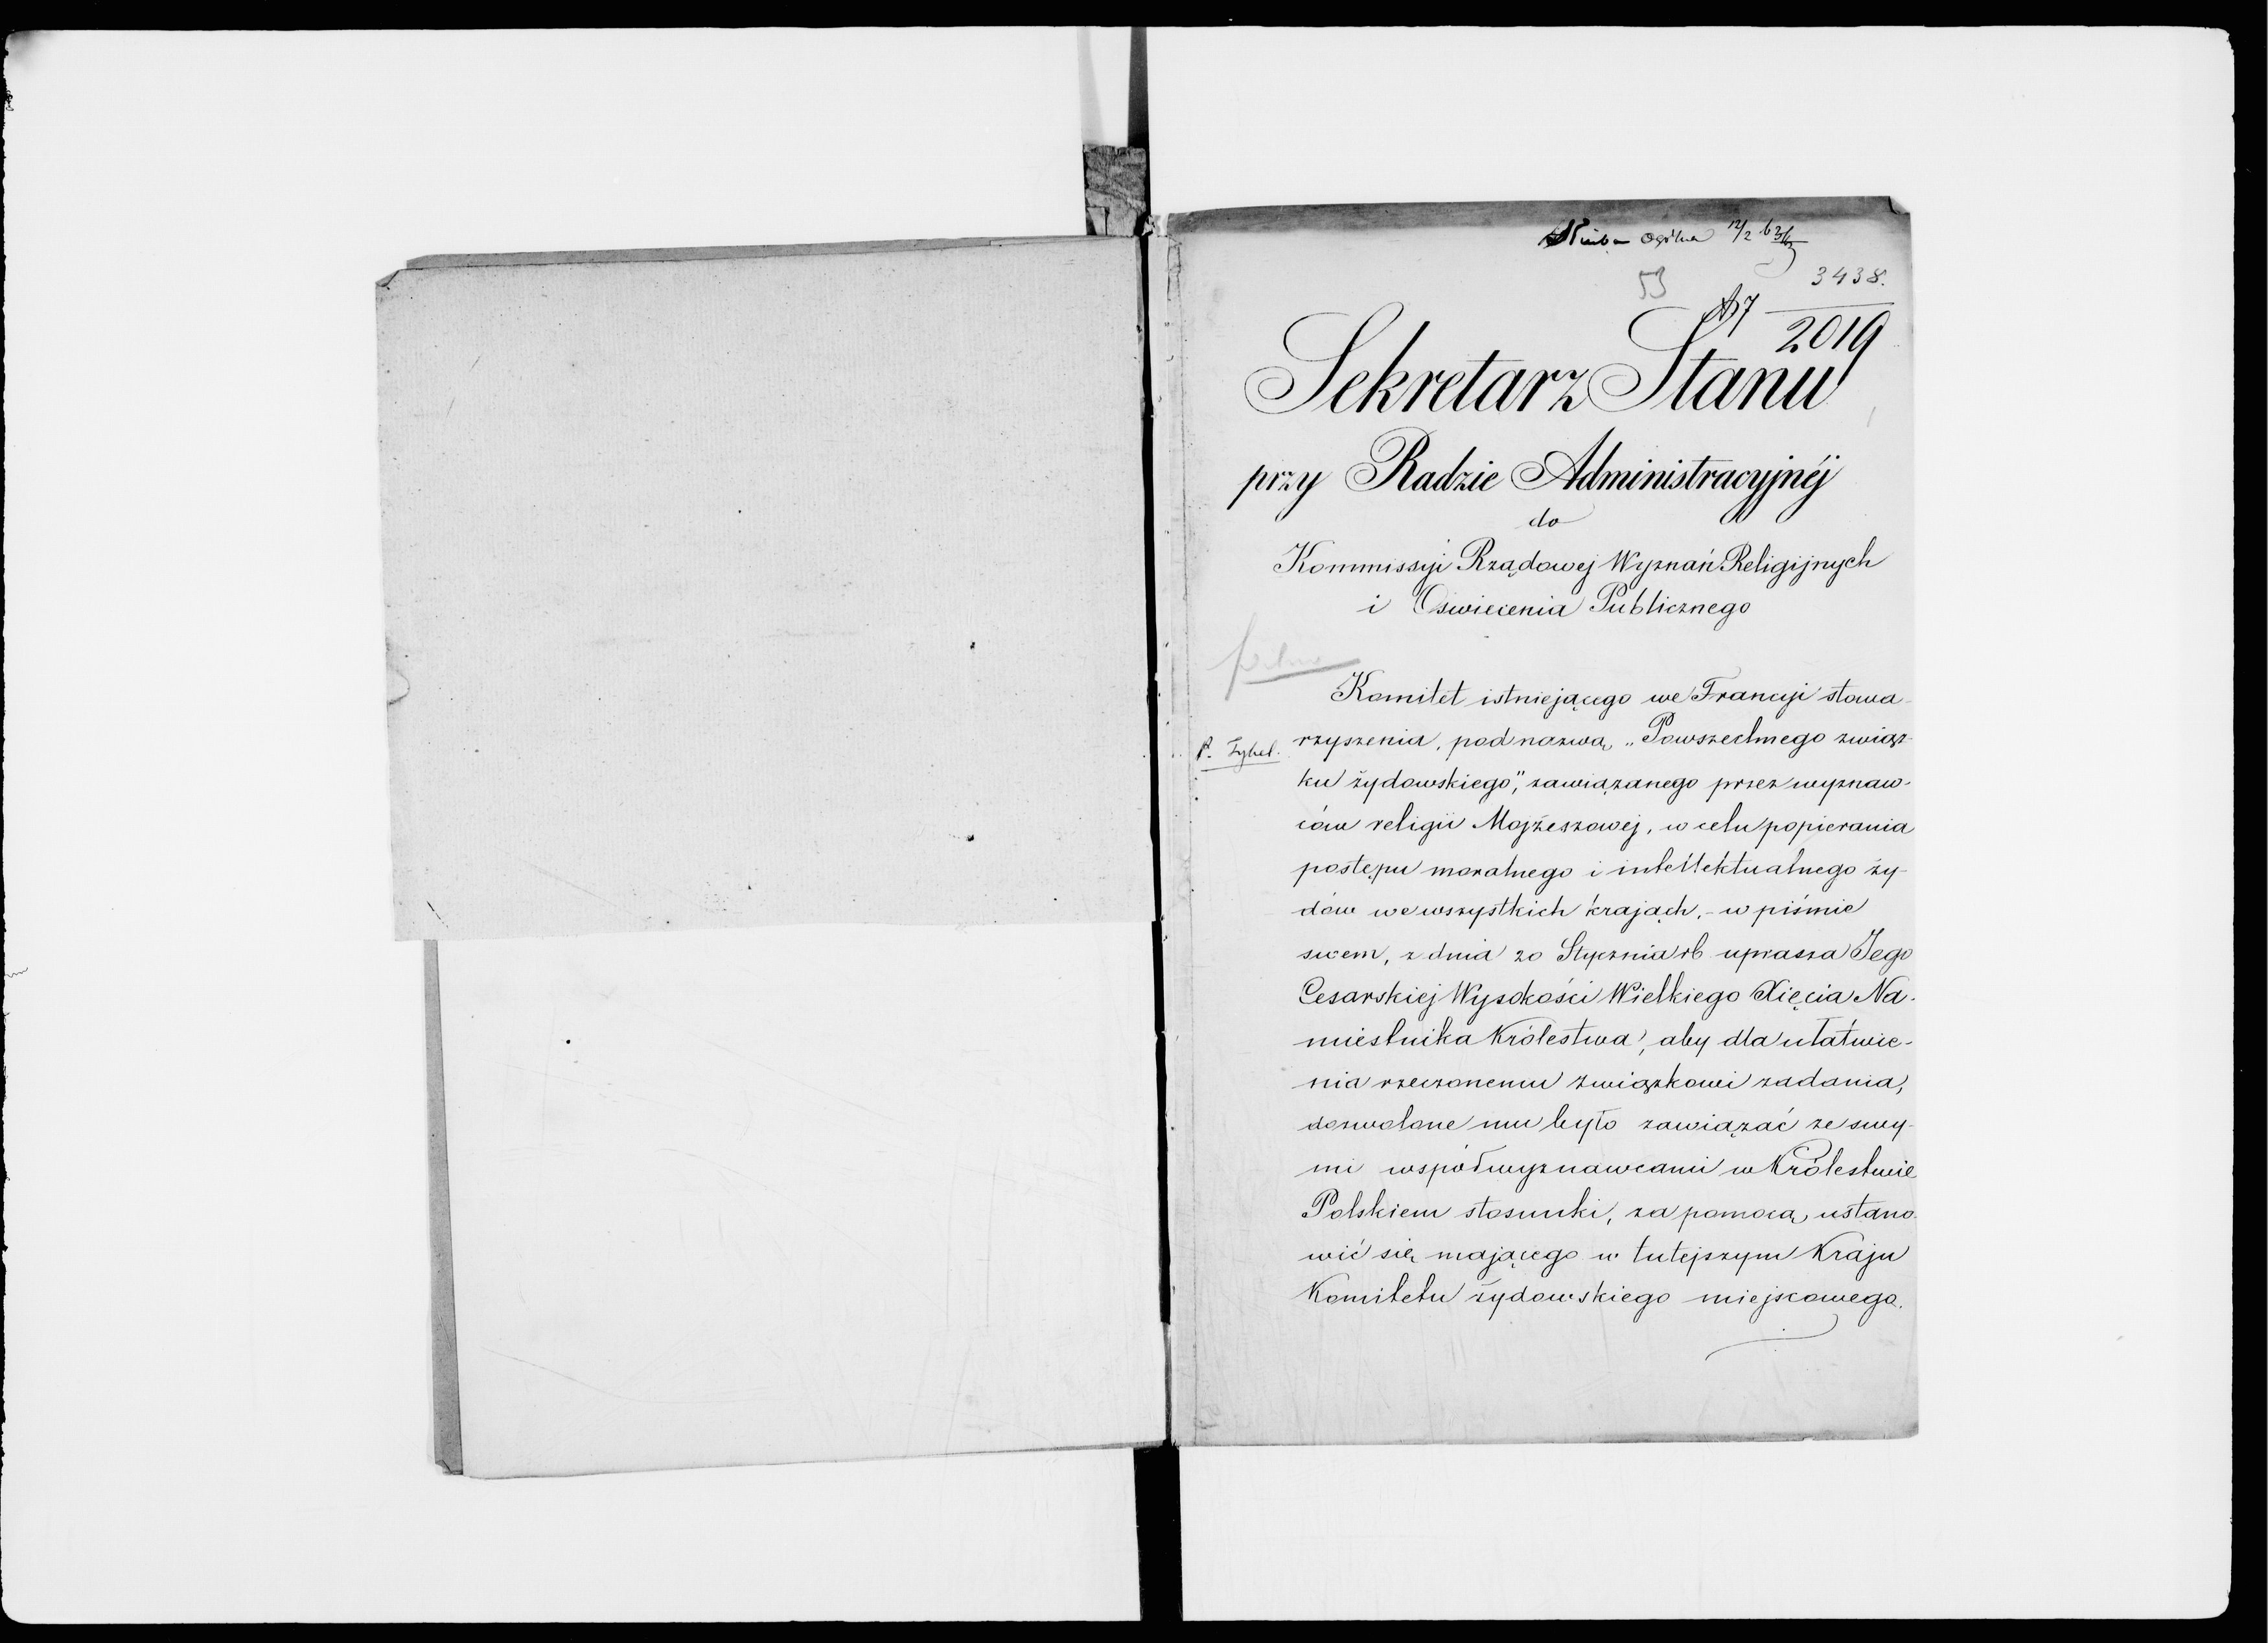 Ogólna 12/2 63
53
3438.
2019
Sekretarz Stanu
przy Radzie Administracyjnéj
do
Kommissyi Rządowej Wyznań Religijnych
i Oświecenia Publicznego
pilno
Komitet istniejącego we Francyi stowa-
rzyszenia, pod nazwą „Powszechnego związ-
ku żydowskiego", zawiązanego przez wyznaw-
ców religii Mojżeszowej, w celu popierania
postępu moralnego i intellektualnego ży-
dów we wszystkich krajach, - w piśmie
swem, z dnia 20 Stycznia rb uprasza Jego
Cesarskiej Wysokości Wielkiego Xięcia Na-
miestnika Królestwa, aby dla ułatwie-
nia rzeczonemu związkowi zadania,
dozwolone mu było zawiązać ze swy-
mi współwyznawcami w Królestwie
Polskiem stosunki, za pomocą ustano-
wić się mającego w tutejszym Kraju
Komitetu żydowskiego miejscowego.